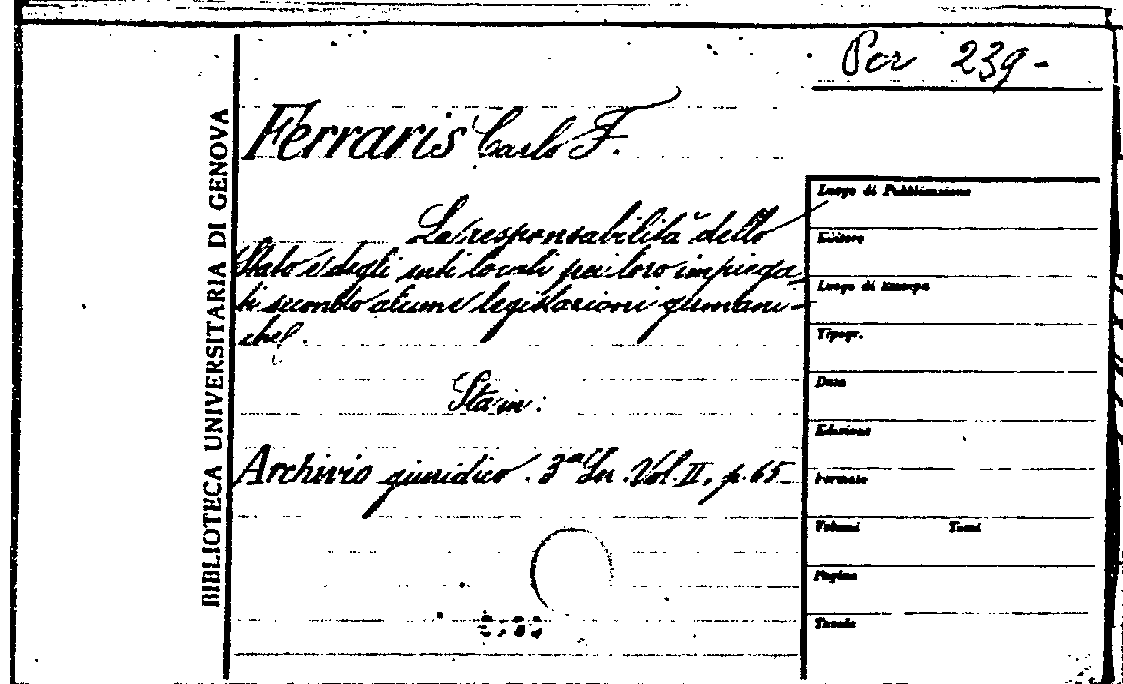 Per 239-
BIBLIOTECA UNIVERSITARIA DI GENOVA
Ferraris Carlo F.
La responsabilità dello
Stato e degli enti locali per loro impiega
ti secondo alcune legislazioni germani-
che.
Sta in:
Archivio giuridico. 3ª Ser. Vol. II, p. 65
Luogo di Pubblicazione
Editore
Luogo di Stampa
Tipogr.
Data
Edizione
Formato
Volumi Tomi
Pagine
Tavole